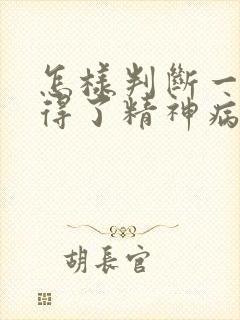 怎樣判斷一
得了精神病
胡長官